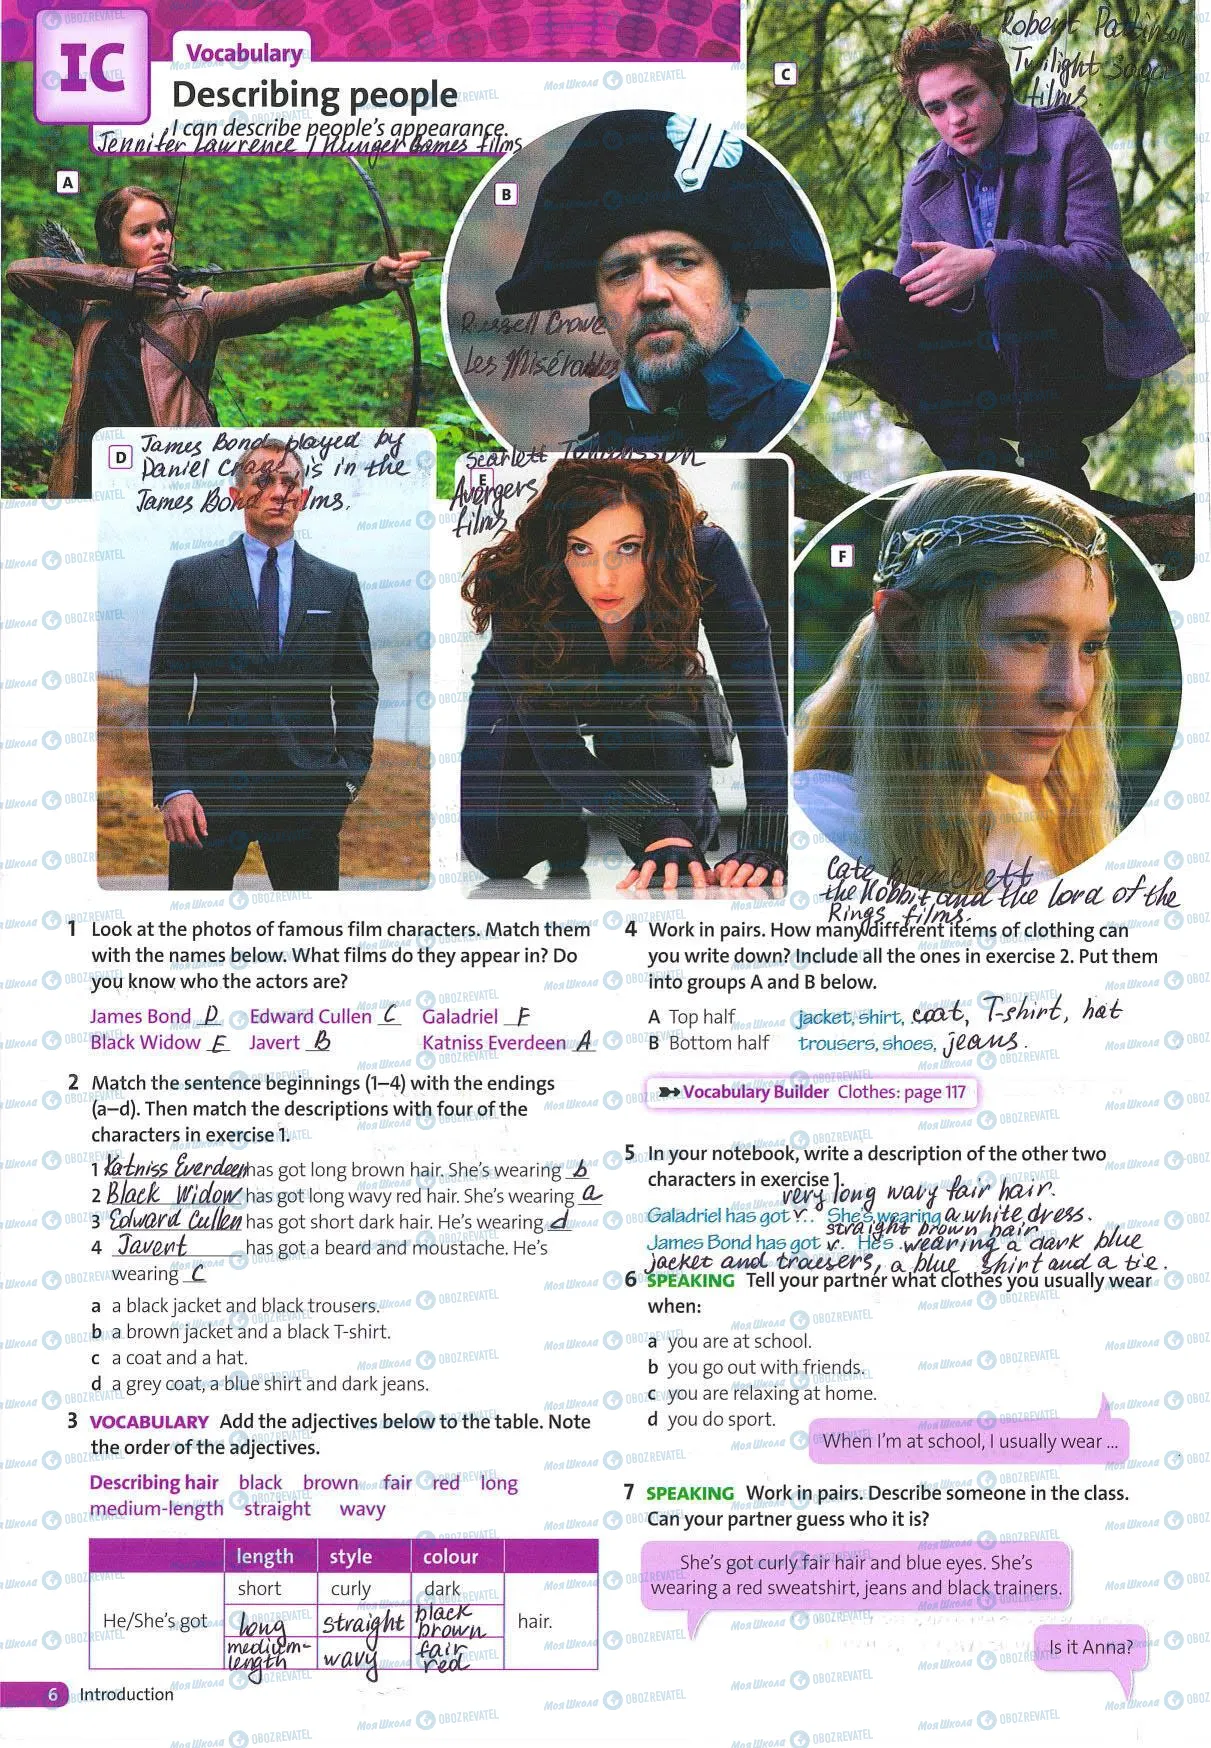 IC
Vocabulary
Describing people
I can describe people's appearance.
Jennifer Lawrence, Hunger Games films
A
B
Russell Crowe
Les Misérables
C
Robert Pattinson
Twilight saga
films.
D
James Bond played by
Daniel Crage, is in the
James Bond films.
Scarlett Johansson
E
Avergers
films
F
Cate Blanchett
the Hobbit and the lord of the
Rings films.
1 Look at the photos of famous film characters. Match them
with the names below. What films do they appear in? Do
you know who the actors are?
James Bond D Edward Cullen C Galadriel F
Black Widow E Javert B Katniss Everdeen A
2 Match the sentence beginnings (1–4) with the endings
(a–d). Then match the descriptions with four of the
characters in exercise 1.
1 Katniss Everdeen has got long brown hair. She's wearing b
2 Black Widow has got long wavy red hair. She's wearing a
3 Edward Cullen has got short dark hair. He's wearing d
4 Javert has got a beard and moustache. He's
wearing c
a a black jacket and black trousers.
b a brown jacket and a black T-shirt.
c a coat and a hat.
d a grey coat, a blue shirt and dark jeans.
3 VOCABULARY Add the adjectives below to the table. Note
the order of the adjectives.
Describing hair black brown fair red long
medium-length straight wavy
length style colour
short curly dark
He/She's got long straight black brown hair.
medium-length wavy fair red
4 Work in pairs. How many different items of clothing can
you write down? Include all the ones in exercise 2. Put them
into groups A and B below.
A Top half jacket, shirt, coat, T-shirt, hat
B Bottom half trousers, shoes, jeans.
Vocabulary Builder Clothes: page 117
5 In your notebook, write a description of the other two
characters in exercise 1.
very long wavy fair hair.
Galadriel has got v... She's wearing a white dress.
straight brown hair
James Bond has got v. He's wearing a dark blue
jacket and traesers, a blue shirt and a tie.
6 SPEAKING Tell your partner what clothes you usually wear
when:
a you are at school.
b you go out with friends.
c you are relaxing at home.
d you do sport.
When I'm at school, I usually wear ...
7 SPEAKING Work in pairs. Describe someone in the class.
Can your partner guess who it is?
She's got curly fair hair and blue eyes. She's
wearing a red sweatshirt, jeans and black trainers.
Is it Anna?
6 Introduction
Моя Школа OBOZREVATEL